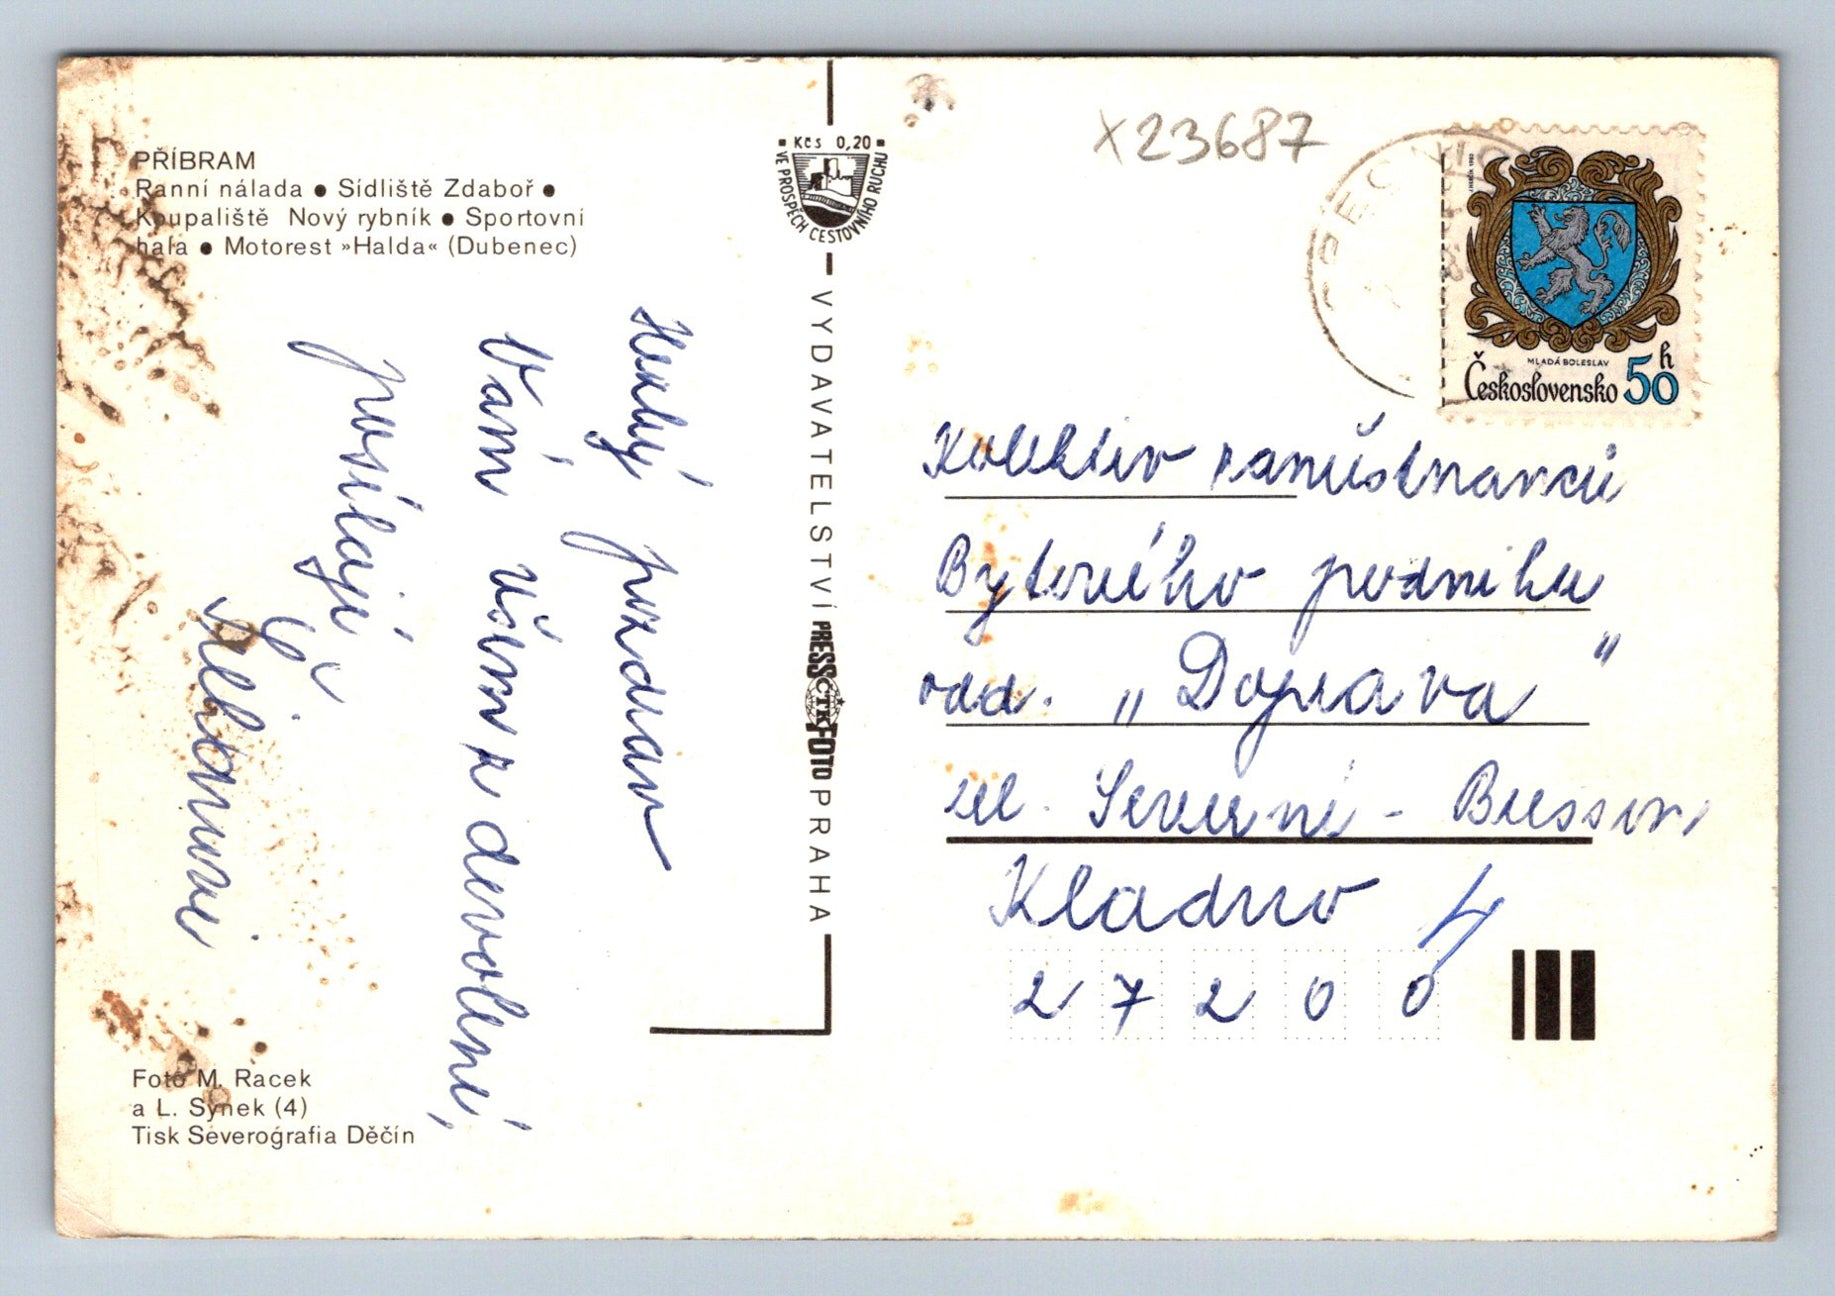 PŘÍBRAM
Ranní nálada ● Sídliště Zdaboř ●
Koupaliště Nový rybník ● Sportovní
hala ● Motorest »Halda« (Dubenec)
Hezký pozdrav
Vám všem z dovolené,
posílají
Foto M. Racek
a L. Synek (4)
Tisk Severografia Děčín
Kčs 0,20
VE PROSPĚCH CESTOVNÍHO RUCHU
VYDAVATELSTVÍ PRESSFOTO PRAHA
ČTK
X23687
MLADÁ BOLESLAV
Československo 50 h
Kolektiv zaměstnanců
Bytového podniku
odd. „Doprava"
ul. Severní -
Kladno 4
27200